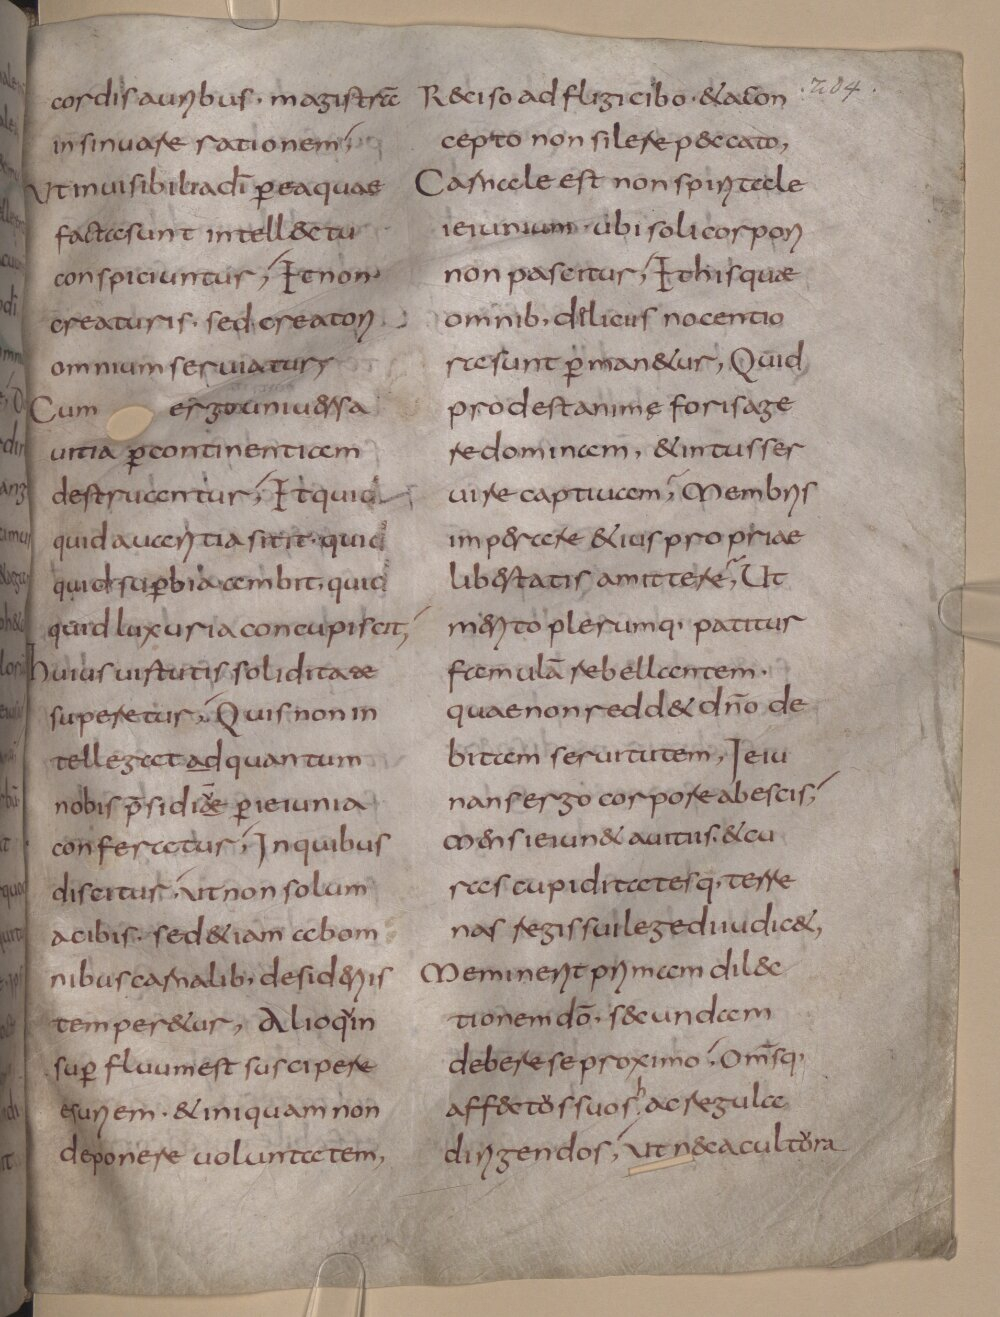 cordis auribus · magistrā
insinuare rationem;
Ut inuisibilia dī p̄ ea quae
facta sunt intell&ctu
conspiciuntur; Et non
creaturis · sed creatori
omnium seruiatur;
Cum ergo uniuersa
uitia p̄ continentiam
destruantur; Et quid
quid auaritia sitit · quid
quid sup̄bia ambit, quid
quid luxuria concupiscit;
huius uirtutis soliditate
superetur; Quis non in
tellegat ad quantum
nobis p̄sidiū p̄ ieiunia
conferatur; In quibus
dicitur, ut non solum
a cibis · sed &iam ab om
nibus carnalib; desideriis
temper&ur, Alioqͥn
sup̄fluum est suscipere
esuriem · & iniquam non
deponere uoluntatem,
R&ciso adfligi cibo · & a con
cepto non silere peccato,
Carnale est non spiritale
ieiunium · ubi soli corpori
non parcitur, Et his quae
omnib; deliciis nocentio
ra sunt p̄man&ur, Quid
prodest animę foris age
re dominam, & intus ser
uire captiuam; Membris
imperare & ius propriae
libertatis amittere; Ut
merito plerumq· patitur
famulā rebellantem ·
quae non redd& dn̄o de
bitam seruitutem, Ieiu
nans ergo corpore ab escis;
Mens ieiun& a uitiis · & cu
ras cupiditatesq· terre
nas regis sui lege diiudic&,
Meminerit primam dilec
tionem dō · secundam
debere se proximo; Omsq·
affectos suos hac regula
dirigendos; Ut nec a cultora
204